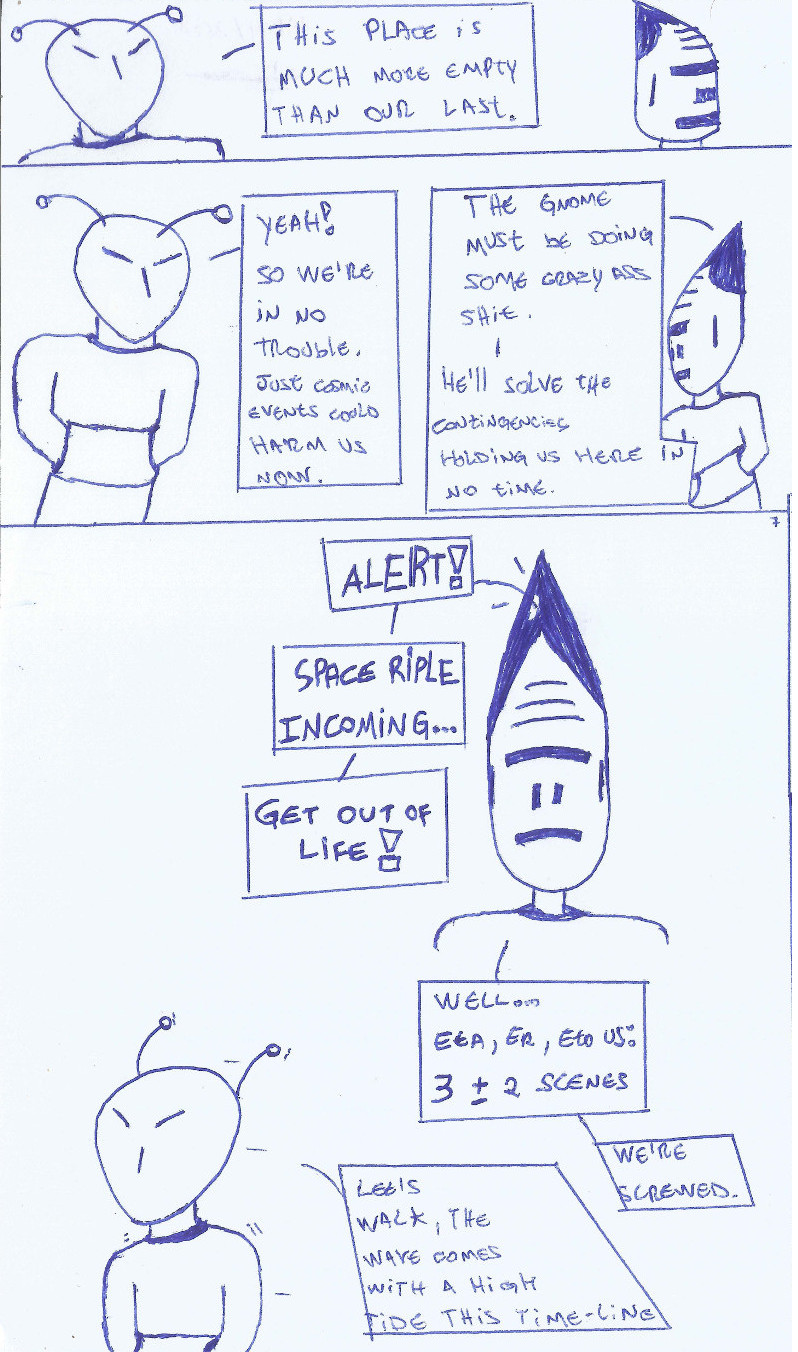 THIS PLACE IS
MUCH MORE EMPTY
THAN OUR LAST.
YEAH!
SO WE'RE
IN NO
TROUBLE.
JUST COSMIC
EVENTS COULD
HARM US
NOW.
THE GNOME
MUST BE DOING
SOME CRAZY ASS
SHIT.
HE'LL SOLVE THE
CONTINGENCIES
HOLDING US HERE IN
NO TIME.
7
ALERT!
SPACE RIPLE
INCOMING...
GET OUT OF
LIFE!
WELL...
ETA, ER, ETO US:
3 ± 2 SCENES
WE'RE
SCREWED.
LET'S
WALK, THE
WAVE COMES
WITH A HIGH
TIDE THIS TIME-LINE